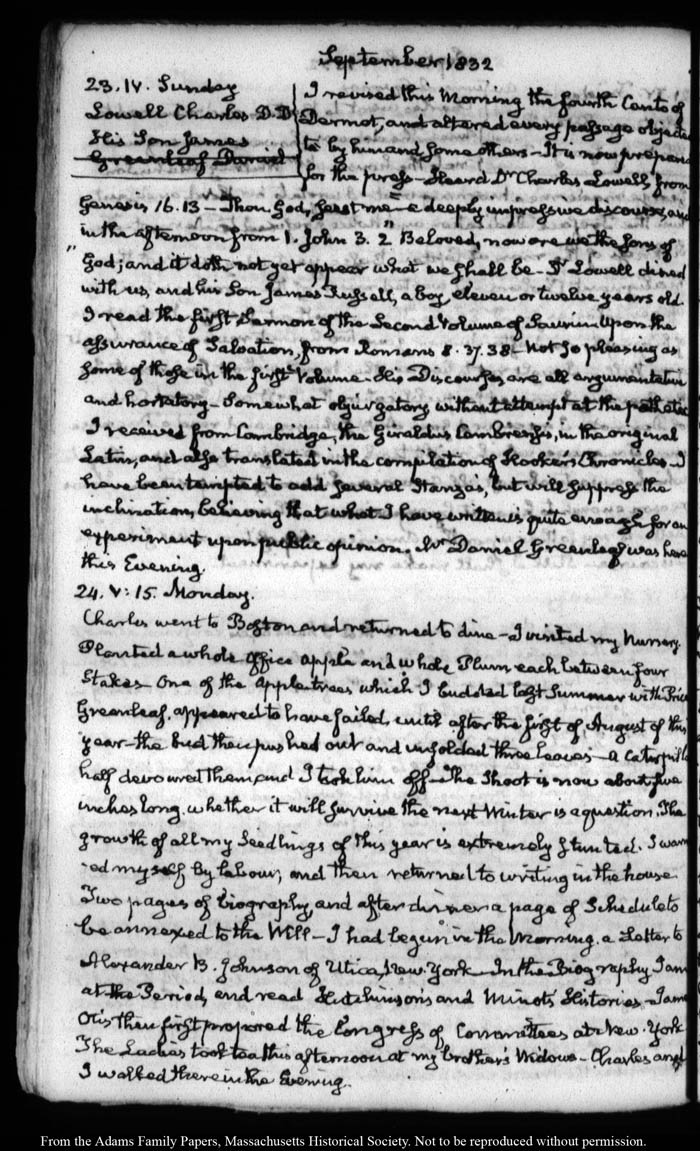 September 1832
23. IV. Sunday
Lowell Charles D.D
His Son James
Greenleaf Daniel
I revised this Morning the fourth Canto of
Dermot, and altered every passage objected
to by him and some others – It is now prepared
for the press – Heard Dr Charles Lowell from
Genesis 16. 13 – Thou God, seest me – a deeply impressive discourse, and
in the afternoon from 1. John 3. 2 " Beloved, now are we the Sons of
" God; and it doth not yet appear what we shall be – Dr Lowell dined
with us, and his Son James Russell, a boy eleven or twelve years old.
I read the first Sermon of the Second Volume of Saurin upon the
assurance of Salvation, from Romans 8. 37. 38 – Not so pleasing as
some of those in the first Volume – His Discourses are all argumentative
and hortatory – Somewhat objurgatory without attempt at the pathetic
I received from Cambridge, the Giraldus Cambrensis, in the original
Latin, and also translated in the compilation of Hooker's Chronicles – I
have been tempted to add several Stanzas, but will suppress the
inclination, believing that what I have written is quite enough for an
experiment upon public opinion. Mr Daniel Greenleaf was here
this Evening.
24. V: 15. Monday.
Charles went to Boston and returned to dine – I visited my Nursery.
Planted a whole office apple and whole Plum each between four
Stakes – One of the Apple trees which I budded last Summer with Price
Greenleaf, appeared to have failed, until after the first of August of this
year – the bud then pushed out and unfolded three leaves – a Caterpillar
half devoured them, and I took him off – The Shoot is now about five
inches long. whether it will survive the next Winter is a question. The
growth of all my Seedlings of this year is extremely stunted. I warm
-ed myself by labour, and then returned to writing in the house
Two pages of biography, and after dinner a page of Schedule to
be annexed to the Will – I had begun in the Morning, a Letter to
Alexander B. Johnson of Utica, New-York – In the Biography I am
at the Period, and read Hutchinson's and Minot's Histories – James
Otis then first proposed the Congress of Committees at New-York
The Ladies took tea this afternoon at my brother's Widow's – Charles and
I walked there in the Evening.
From the Adams Family Papers, Massachusetts Historical Society. Not to be reproduced without permission.